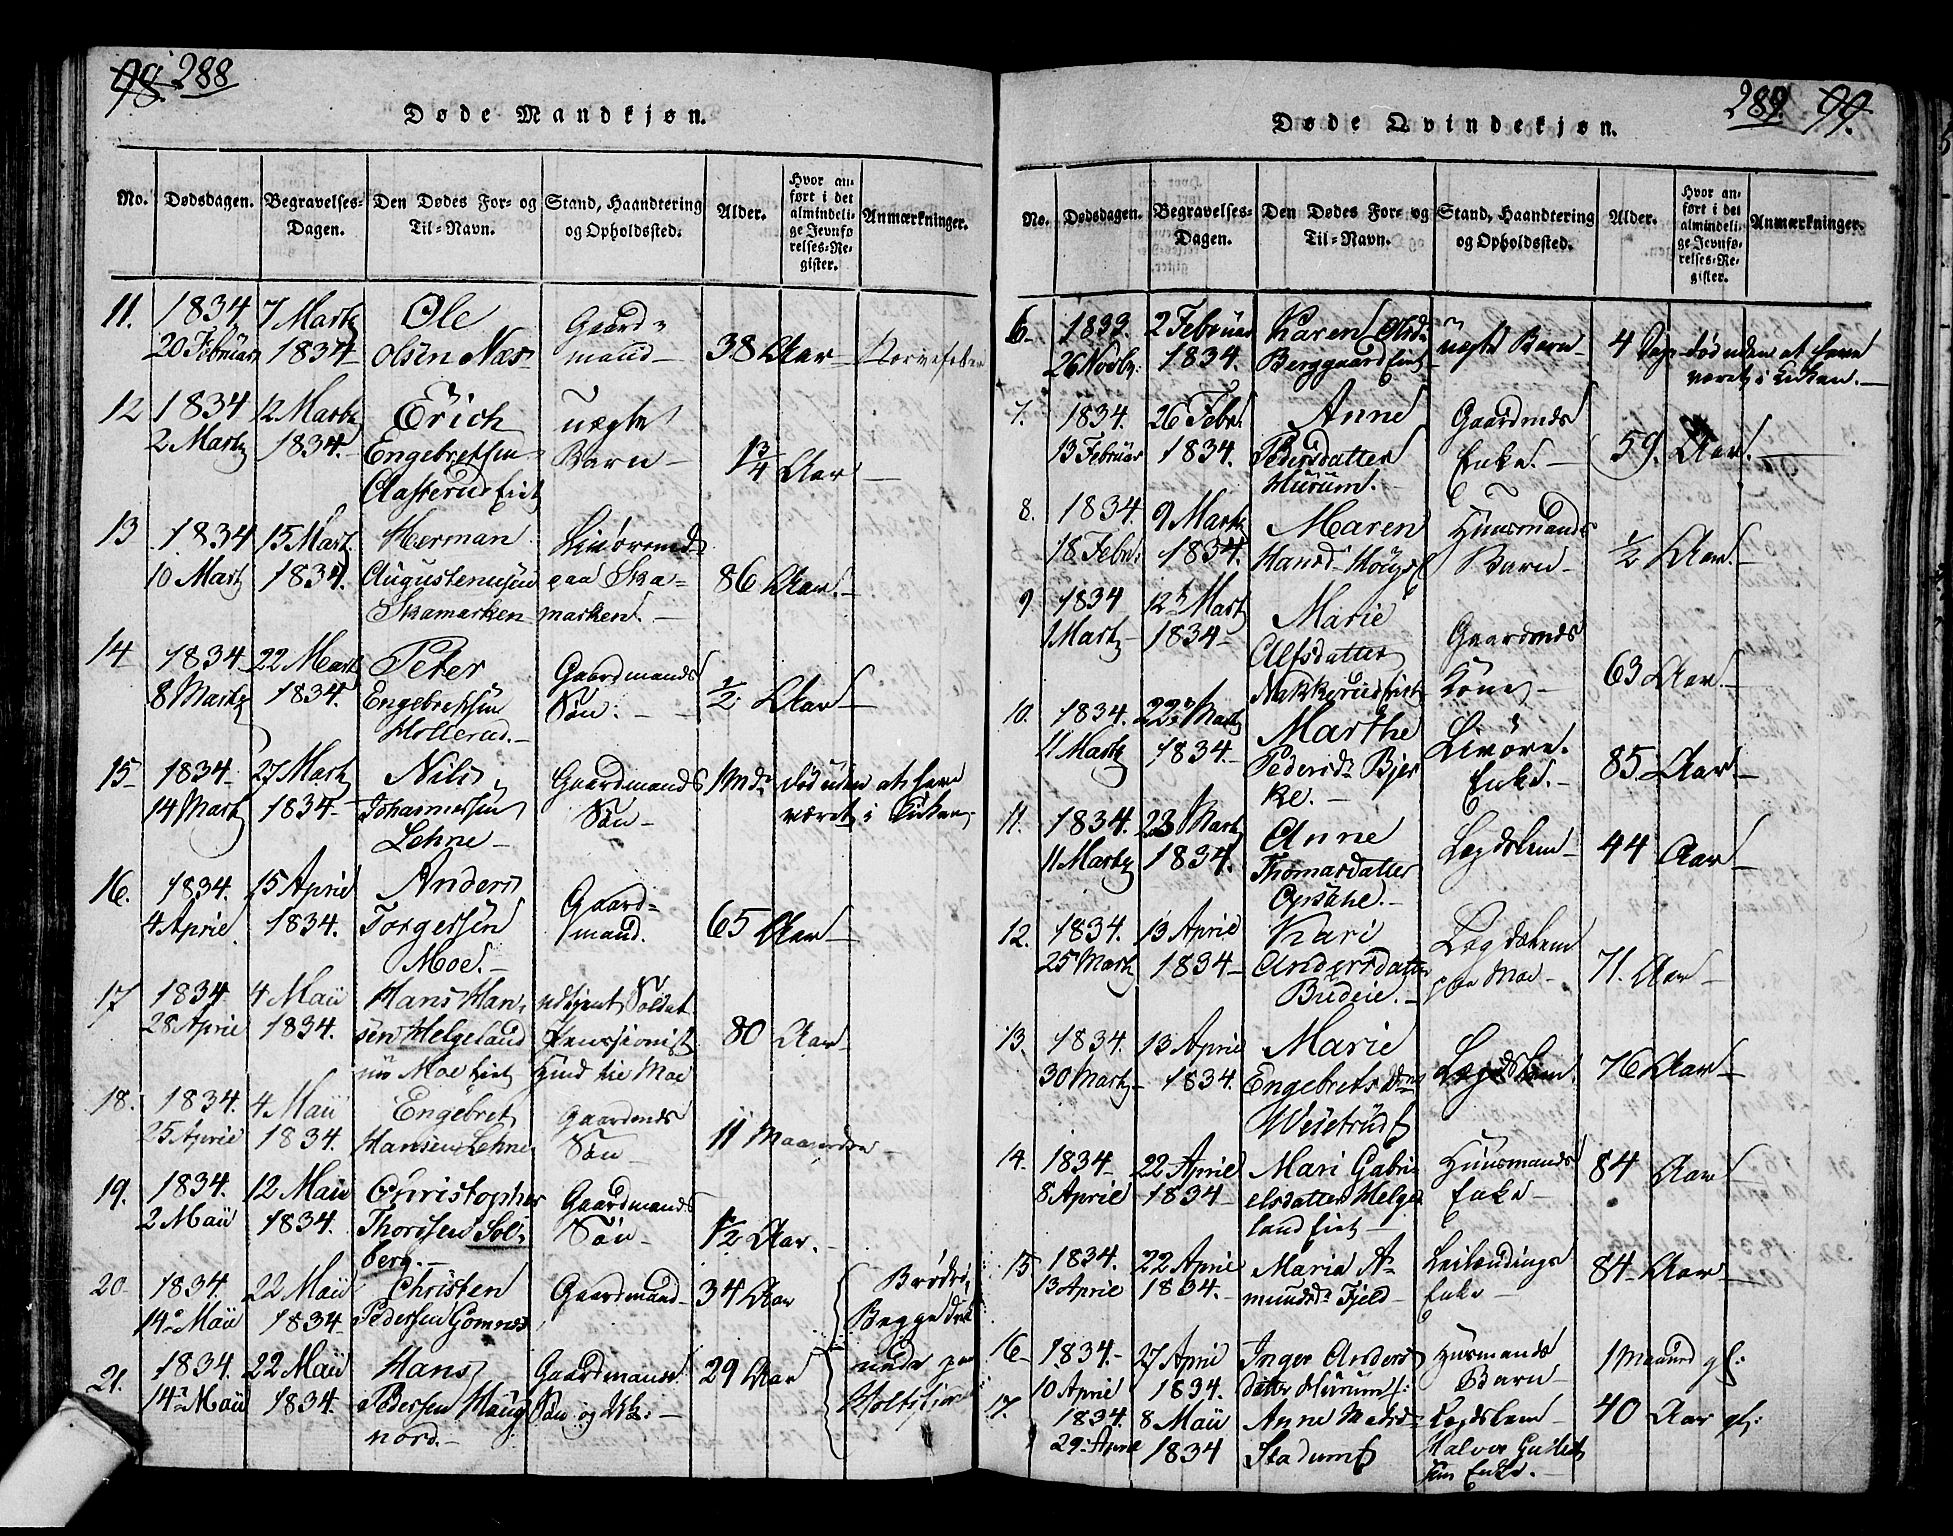 98. 288
Døde Mandkjøn.
No. Dødsdagen. Begravelses-Dagen. Den Dødes For- og Til-Navn. Stand, Haandtering og Opholdssted. Alder. Hvor anført i det almindelige Jevnførelses-Register. Anmærkninger.
11. 1834 7 Martz Ole Gaard-
20 Februar 1834 Olsen Næs mand 38 Aar
12 1834 12 Martz Erich uægte
2 Martz 1834. Engebretsen Barn 1 3/4 Aar
13 1834 15 Mart. Herman
10 Martz 1834. Augustenusen paa Ska= 86 Aar.
Skamarken marken.
14 1834 22 Mart Peter Gaardmands
8 Martz 1834. Engebretsen Søn. 1/2 Aar
Hollerud.
15 1834 27 Martz Nils Gaardmands 1 Md: død uden at have
14 Martz 1834 Johannessen Søn været i Kirken
Lehne
16. 1834. 15 April Anders Gaard=
4 April 1834. Torgersen mand. 65 Aar
Moe.
17 1834 4 Maii Hans Han- udtjent Soldat
28 April 1834. sen Helgeland Pensionist 80 Aar
18. 1834. 4 Maii Engebret Gaardmds
25 April 1834. Hansen Lehne Søn 11 Maaneder
19. 1834. 12 Maii Christopher Gaardmands
2 Maii 1834. Thorssen Sol- Søn 1/2 Aar.
berg.
20 1834. 22 Maii Christen Gaardmand 34 Aar Brødre,
14 Maii 1834 Pedersen Gomnes Begge druk
21. 1834. 22 Maii Hans Gaardmands 29 Aar nede paa
14 Maii 1834. Pedersen Haug Søn og
nord.
289. 99.
Døde Qvindekjøn.
No. Dødsdagen. Begravelses-Dagen. Den Dødes For- og Til-Navn. Stand, Haandtering og Opholdssted. Alder. Hvor anført i det almindelige Jevnførelses-Register. Anmærkninger.
6 1833. 2 Februar Karen Olsd: uægte Barn 4 Dage død uden at have
26 Novbr: 1834. Berggaard Eiet været i Kirken.
7. 1834. 26 Febr. Anne Gaardmds
13 Februar 1834. Pedersdatter Enke. 59. Aar.
Hurum.
8. 1834. 9 Martz Maren Huusmands
18 Febr. 1834. Barn 1/2 Aar.
9 1834 12 Mart Marie Gaardmds
1 Martz 1834 Alfsdatter 63 Aar.
Nakkerud Eiet Kone
10. 1834. 22 Martz Marthe Livøre.
11 Martz 1834. Pedersd: Bjer Enke. 85 Aar
ke.
11. 1834. 23 Martz Anne Lægdslem 44 Aar
11 Martz 1834. Thomasdatter
Opsahe.
12. 1834. 13 April Kari Lægdslem
25 Martz 1834 Andersdatter paa Moe 71. Aar
Budeie.
13. 1834. 13 April Marie Lægdslem. 76 Aar
30 Martz 1834. Engebretsd
14. 1834 22 April Mari Gabri Huusmands 84 Aar
8 April 1834 elsdatter Helge Enke
land Eiet
15 1834. 22 April Maria A- Leilændings 84 Aar
13 April 1834. mundsd: Fjeld Enke
16 1834. 27 April Inger Anders Husmands 1 Maaned gl:
10 April 1834. datter Hurum Barn
17. 1834. 8 Maii Anne Madsd: Lægdslem 40 Aar gl:
29 April 1834 Halvor
Enke.